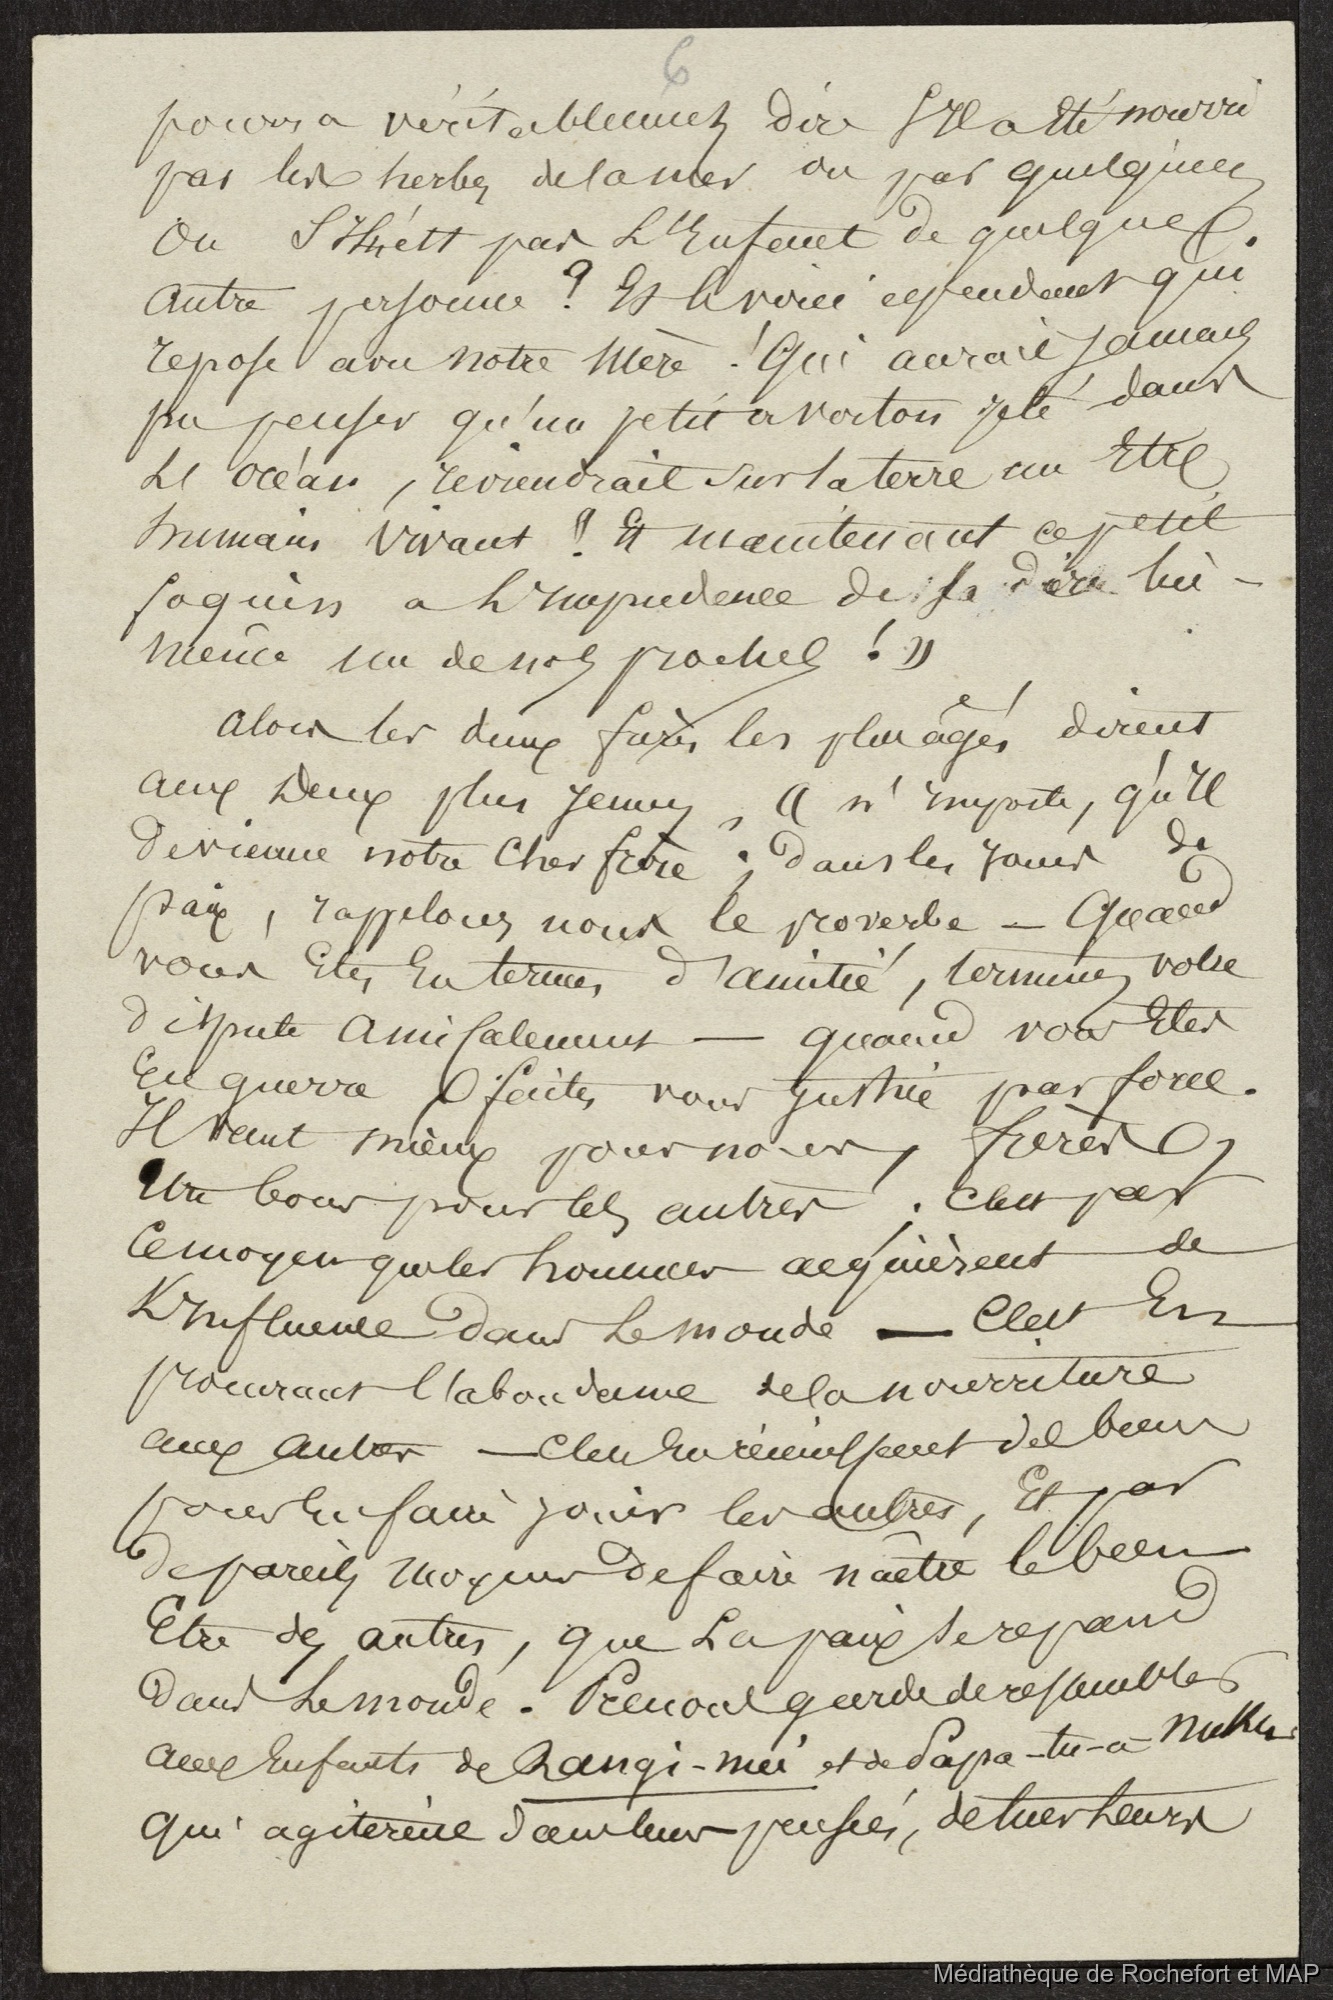 6
pourra véritablement dire S'Il a Eté nourri
par les herbes de la mer ou par quelqu'un
Ou S'Il n'est pas L'Enfant de quelque
autre personne ? Et le voici cependant qui
repose avec notre Mère ! Qui aurait jamais
pu penser qu'un petit avorton jeté dans
L'océan, reviendrait sur la terre un Etre
humain vivant ! Et maintenant ce petit
faquin a L'Impudence de se dire lui-
même un de nos proches ! »
Alors les deux frères les plus âgés dirent
aux Deux plus Jeunes, « n'importe, qu'Il
devienne notre Cher frère ; dans les jours de
paix, rappelons nous le proverbe — Quand
vous Etes En termes d'amitié, terminez votre
dispute amicalement — quand vous Etes
En guerre faites vous justice par force.
Il vaut mieux pour nous, frères,
Etre bons pour les autres ; C'est par
ce moyen que les hommes acquièrent de
L'Influence dans Le monde — C'est En
procurant l'abondance de la nourriture
aux autres — C'est En réunissant des biens
pour En faire jouir les autres, Et par
de pareils moyens de faire naître le bien
Etre des autres, que La paix se répand
dans Le monde. Prenons garde de ressembler
aux Enfants de Rangi-nui et de Papa-tu-a Nuku
qui agitèrent dans leurs pensées, de tuer Leurs
Médiathèque de Rochefort et MAP